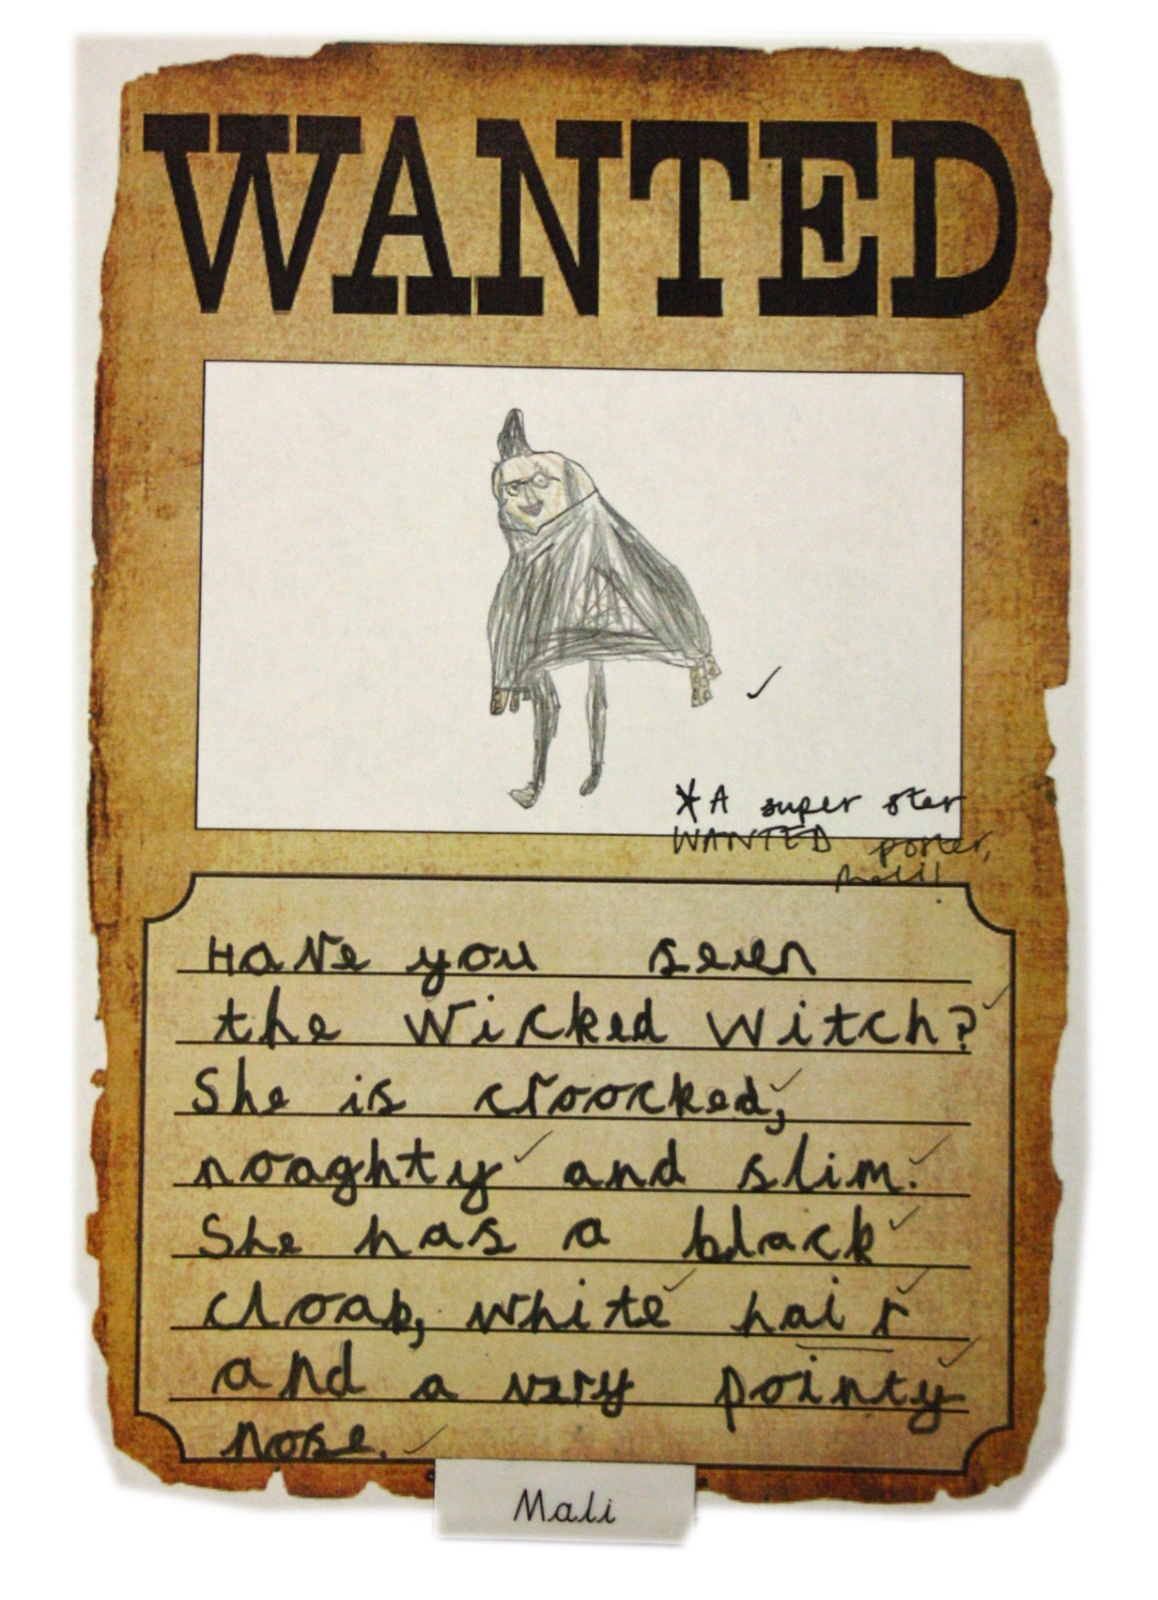 WANTED
*A super star
WANTED poster,
Mali!
Have you seen
the Wicked Witch?
She is croocked,
noaghty and slim.
She has a black
cloak, white hair
and a very pointy
nose.
Mali